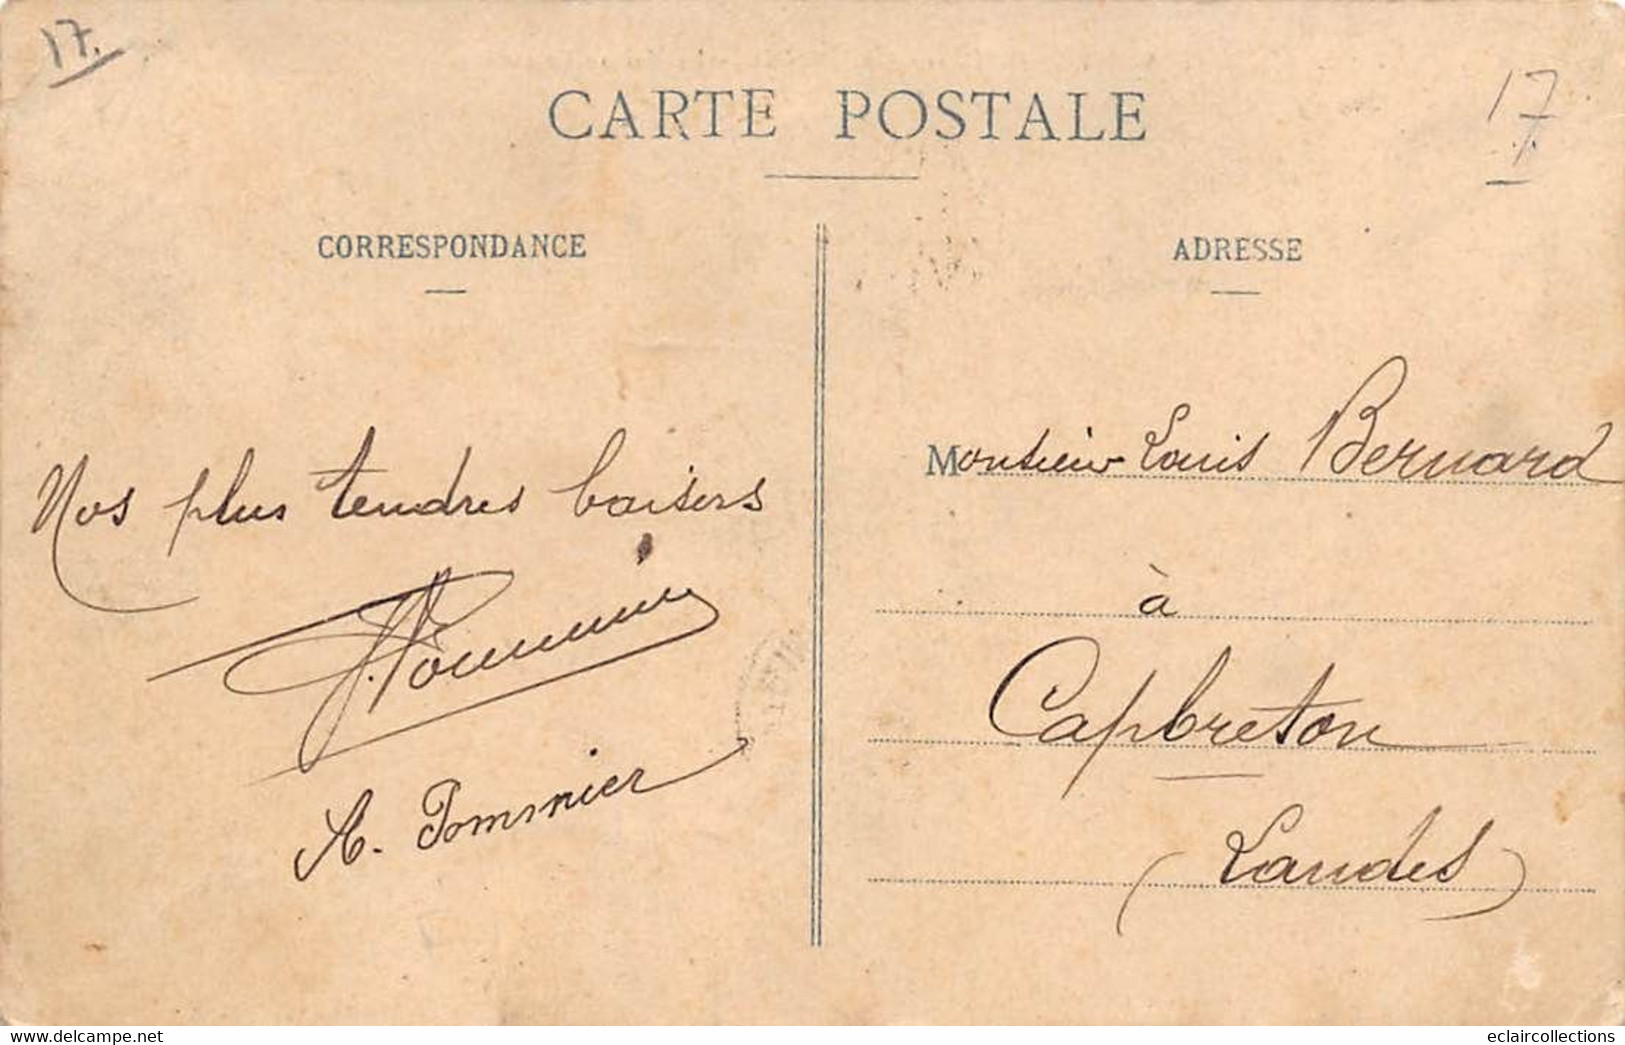 17.
17
CARTE POSTALE
CORRESPONDANCE
ADRESSE
Nos plus tendres baisers
A. Pommier
Monsieur Louis Bernard
à
Capbreton
(Landes)
www.delcampe.net
eclaircollections